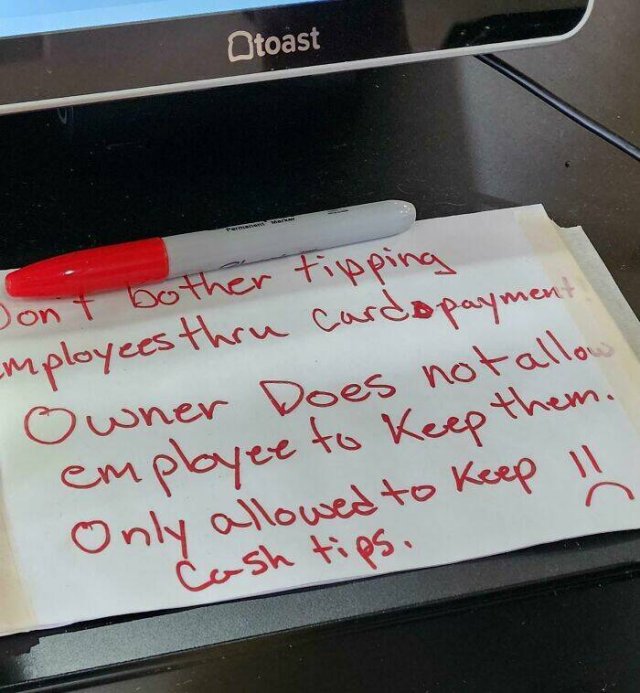 toast
Permanent Marker
Don't bother tipping
employees thru card payment.
Owner Does not allow
employee to Keep them.
Only allowed to Keep
Cash tips.